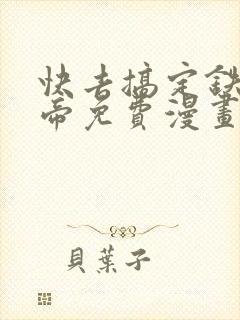 快去搞定鉄
帝免費漫畫
貝葉子